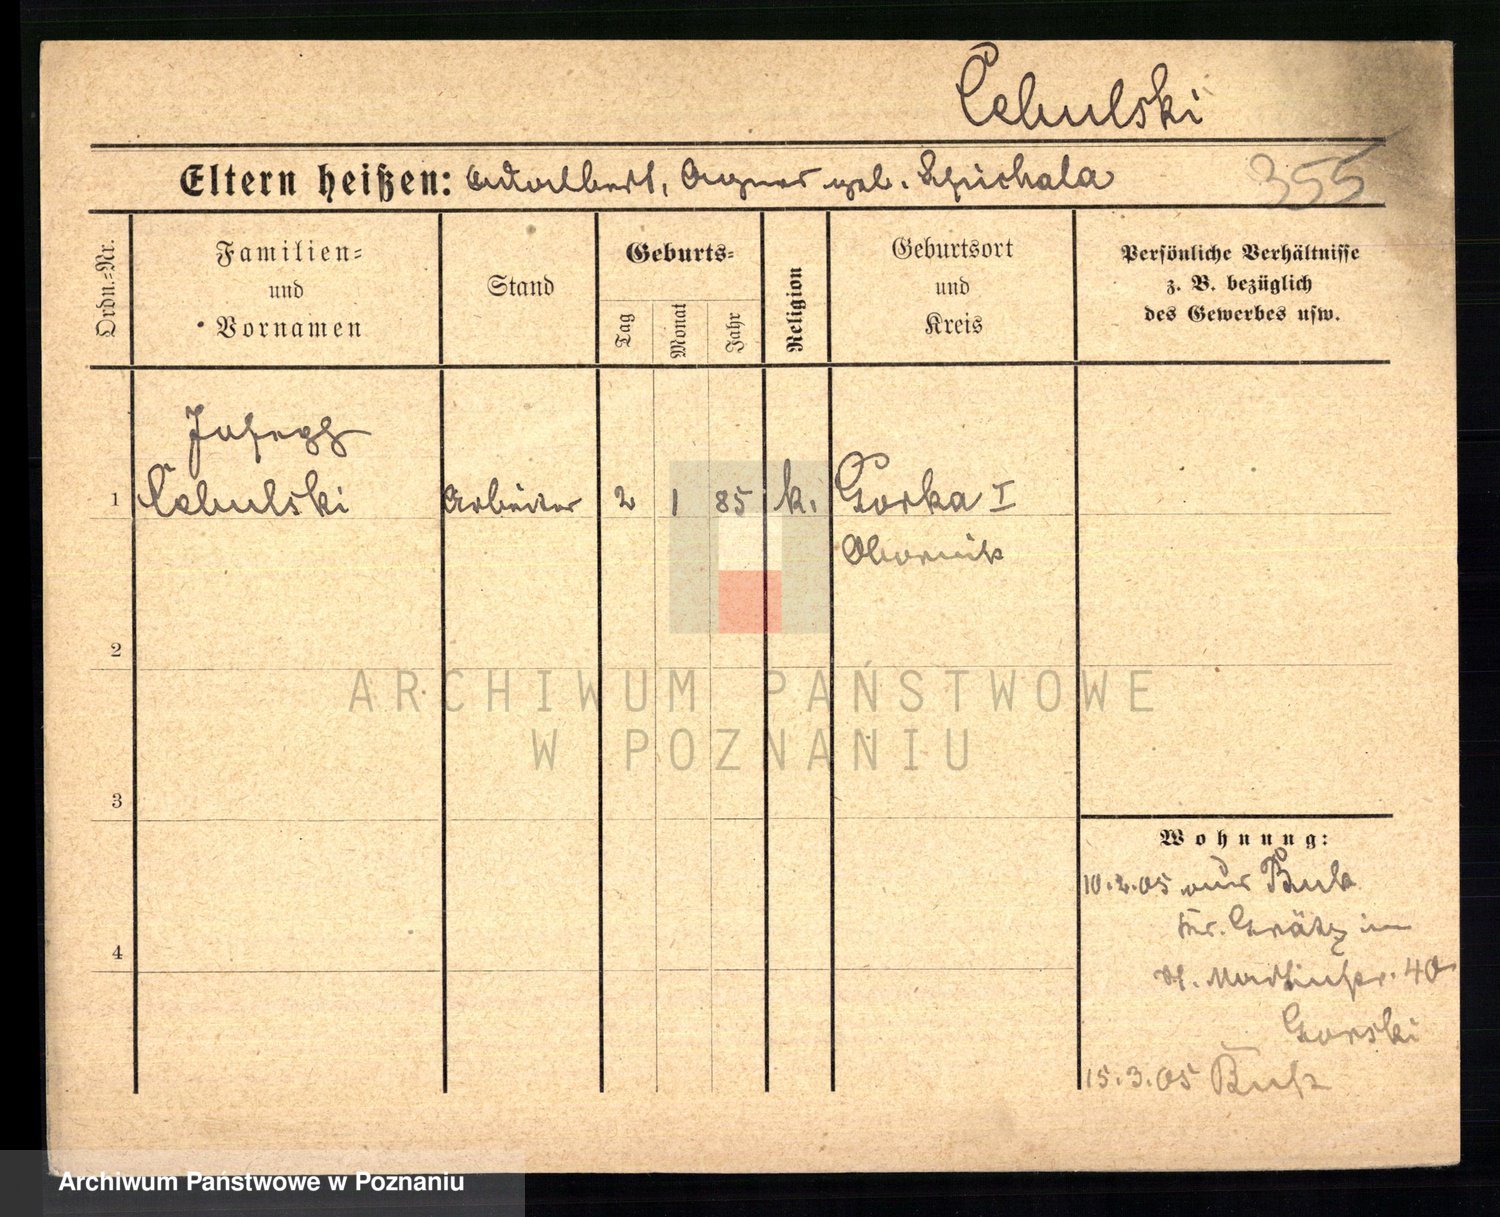 Cebulski
Eltern heißen: Adalbert, Agnes geb. Spichala
355
Ordn.-Nr.
Familien-
und
Vornamen
Stand
Geburts-
Tag
Monat
Jahr
Religion
Geburtsort
und
Kreis
Persönliche Verhältnisse
z. B. bezüglich
des Gewerbes usw.
Joseph
1 Cebulski Arbeiter 2 1 85 k. Gorka I
Obornik
2
ARCHIWUM PAŃSTWOWE
W POZNANIU
3
Wohnung:
10.2.05 aus Buk
Kr. Grätz in
St. Martinstr. 40
Gorski
4
15.3.05 Buk
Archiwum Państwowe w Poznaniu